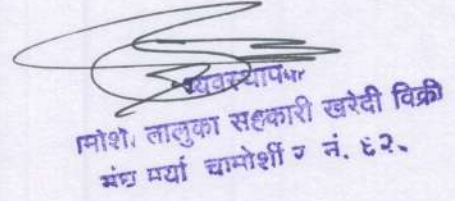 व्यवस्थापक
चामोर्शी तालुका सहकारी खरेदी विक्री
संघ मर्या चामोर्शी र नं. ६२.